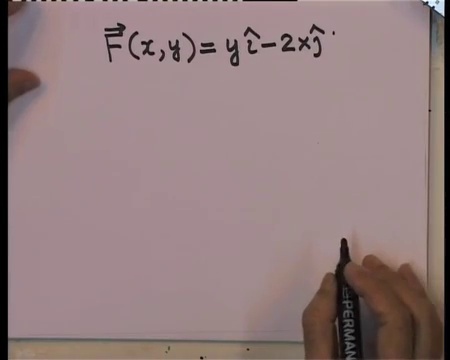 F⃗(x,y) = yî − 2xĵ
PERMAN